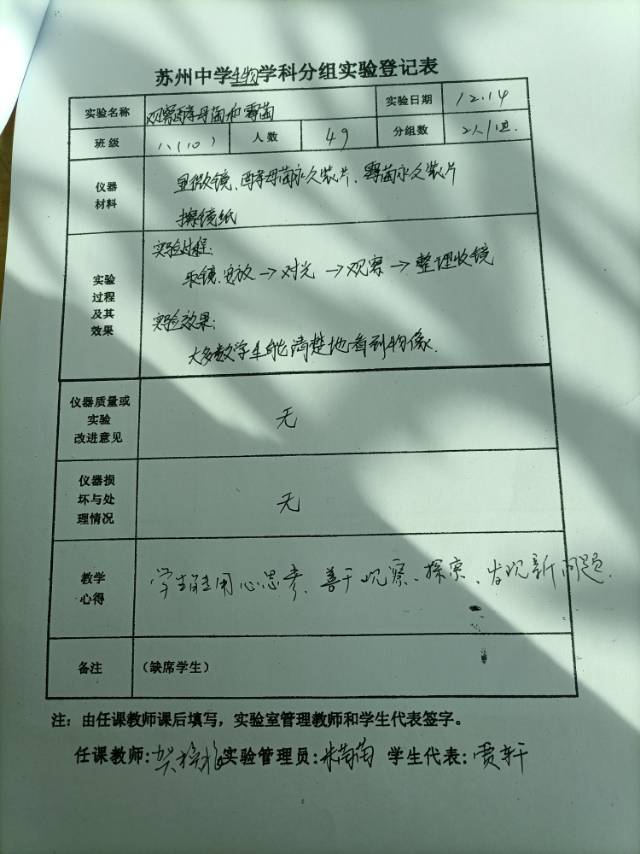 苏州中学生物学科分组实验登记表
实验名称 观察酵母菌和霉菌 实验日期 12.14
班级 八(10) 人数 49 分组数 2人/组.
仪器材料 显微镜、酵母菌永久装片、霉菌永久装片
擦镜纸
实验过程及其效果 实验过程:
取镜、安放→对光→观察→整理收镜
实验效果:
大多数学生能清楚地看到物像.
仪器质量或实验改进意见 无
仪器损坏与处理情况 无
教学心得 学生能用心思考、善于观察、探索、发现新问题.
备注 (缺席学生)
注:由任课教师课后填写,实验室管理教师和学生代表签字。
任课教师: 实验管理员: 学生代表:贾轩